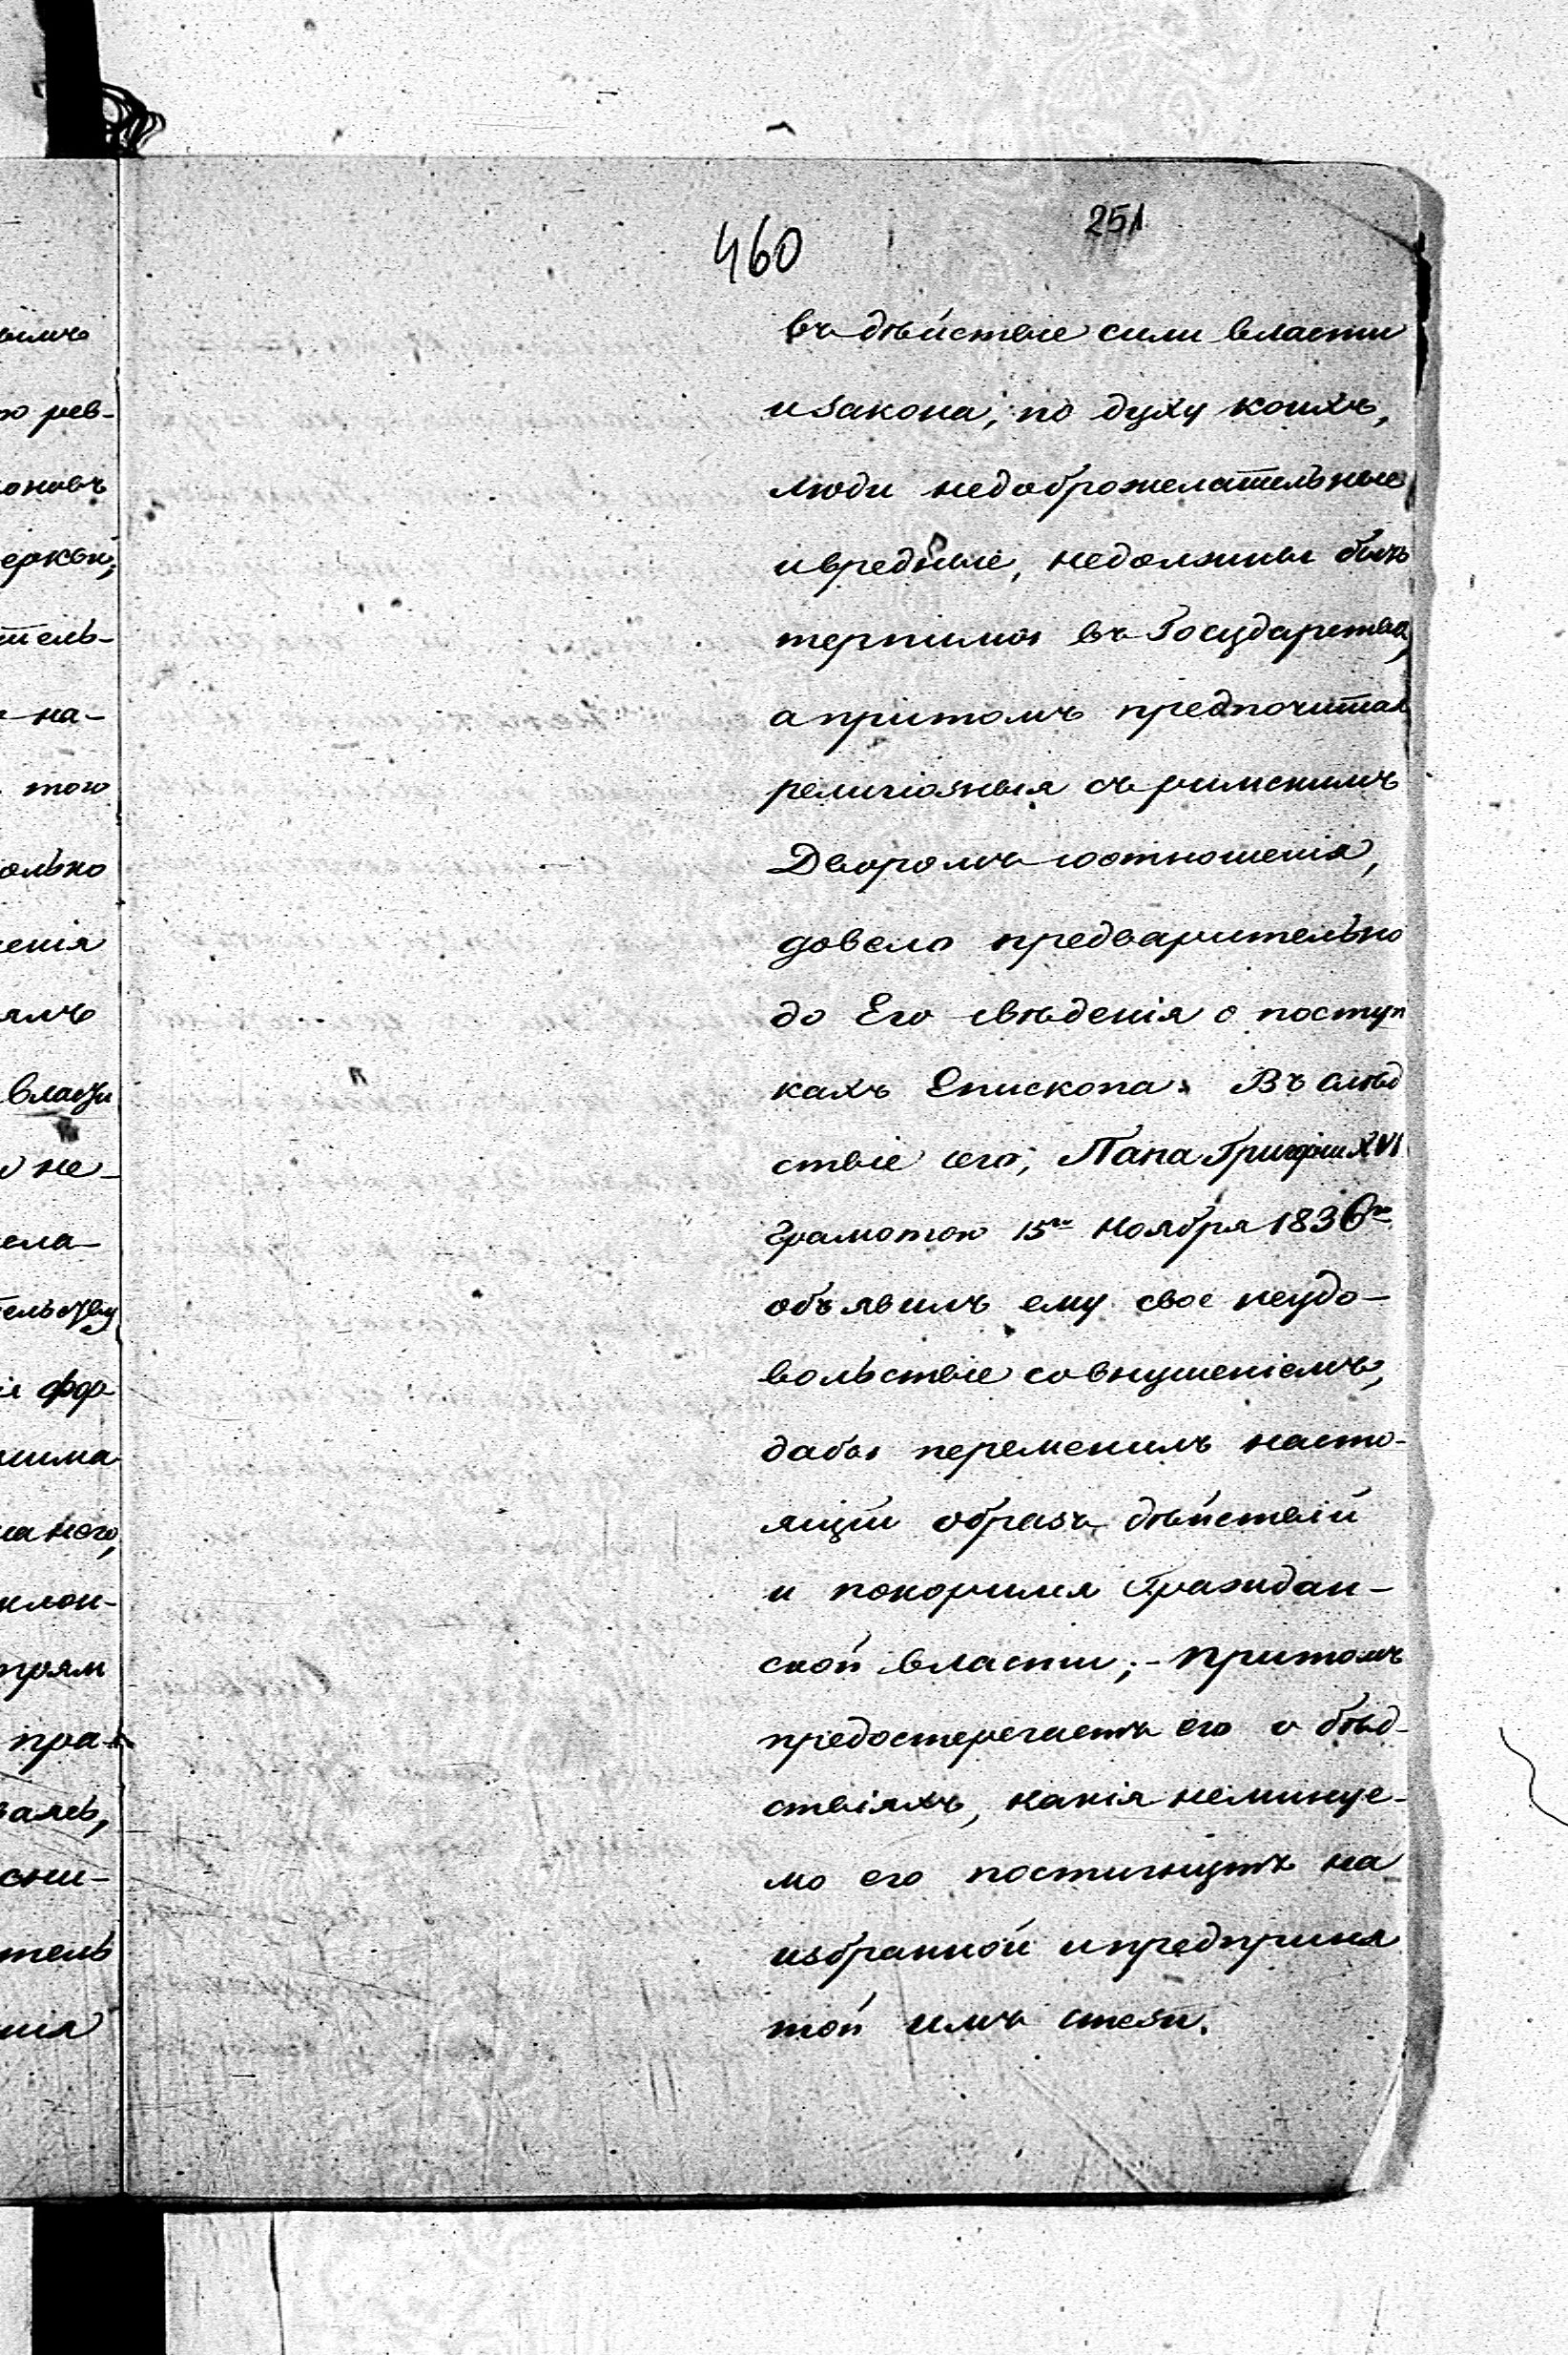 460
251
въ дѣйствіе силы власти
и закона, по духу коихъ,
люди недоброжелательные
и вредные, недолжны быть
терпимы въ Государствѣ,
а притомъ предпочитая
религіозныя съ римскимъ
Дворомъ соотношенія,
довело предварительно
до Его свѣденія о поступ
кахъ Епископа. Въ слѣд
ствіе сего, Папа Григорій XVI
грамотою 15го Ноября 1836го
объявилъ ему свое неудо-
вольствіе со внушеніемъ,
дабы переменилъ насто-
ящій образъ дѣйствій
и покорился Граждан-
ской власти; - притомъ
предостерегаетъ его о бѣд-
ствіяхъ, какія неминуе-
мо его постигнутъ на
избранной и предприня
той имъ стези.